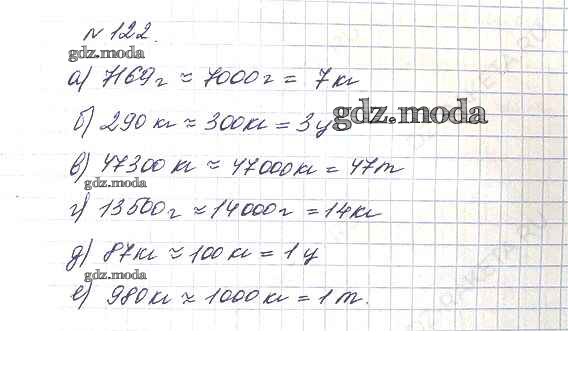 № 122.
gdz.moda
а) 7169 г ≈ 7000 г = 7 кг
gdz.moda
б) 290 кг ≈ 300 кг = 3 ц
в) 47300 кг ≈ 47000 кг = 47 т
gdz.moda
г) 13500 г ≈ 14000 г = 14 кг
д) 87 кг ≈ 100 кг = 1 ц
gdz.moda
е) 980 кг ≈ 1000 кг = 1 т.